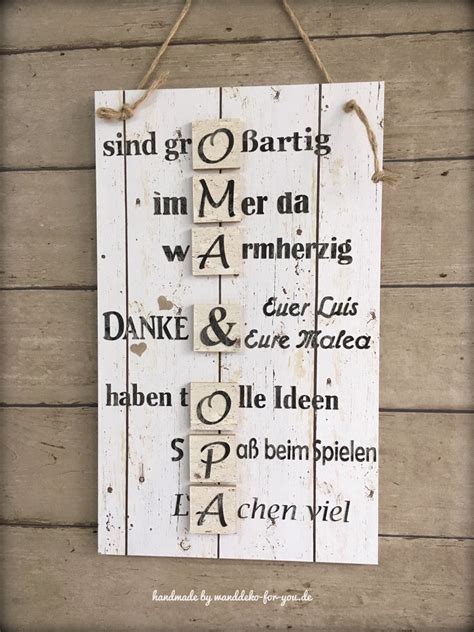 sind grOßartig
imMer da
wArmherzig
DANKE & Euer Luis
Eure Malea
haben tOlle Ideen
SPaß beim Spielen
LAchen viel
handmade by wanddeko-for-you.de